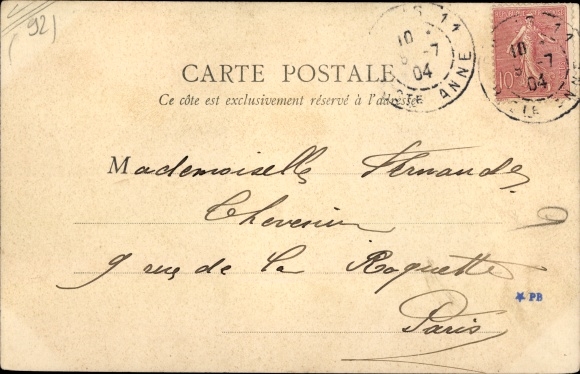 (92)
CARTE POSTALE
Ce côte est exclusivement réservé à l'adresse
11
10
7
04
STE ANNE
10
7
04
10c
Mademoiselle Fernande
9 rue de la Roquette
Paris
PB